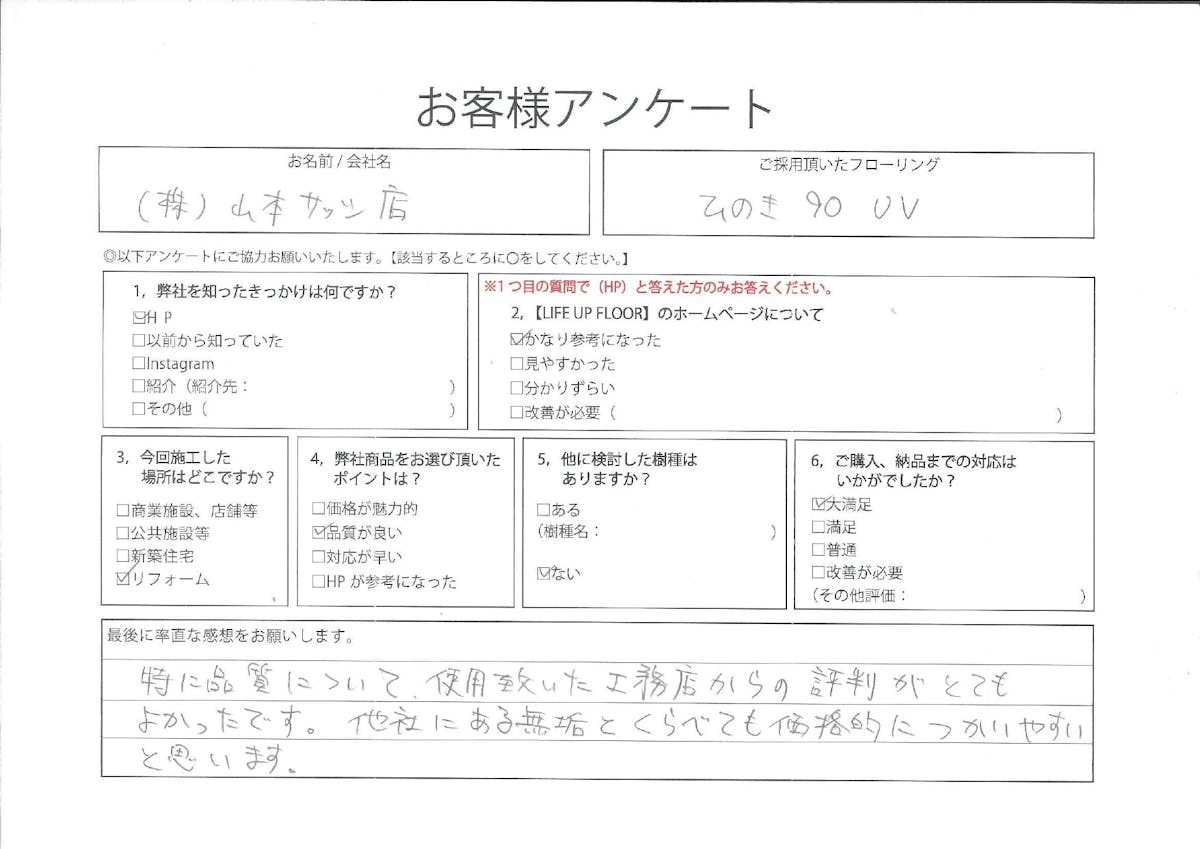 お客様アンケート
お名前 / 会社名
(株) 山本サッシ店
ご採用頂いたフローリング
ひのき 90 UV
◎以下アンケートにご協力お願いいたします。【該当するところに〇をしてください。】
1，弊社を知ったきっかけは何ですか？
☑HP
□以前から知っていた
□Instagram
□紹介（紹介先： ）
□その他（ ）
※1つ目の質問で（HP）と答えた方のみお答えください。
2，【LIFE UP FLOOR】のホームページについて
☑かなり参考になった
□見やすかった
□分かりずらい
□改善が必要（ ）
3，今回施工した
場所はどこですか？
□商業施設、店舗等
□公共施設等
□新築住宅
☑リフォーム
4，弊社商品をお選び頂いた
ポイントは？
□価格が魅力的
☑品質が良い
□対応が早い
□HP が参考になった
5，他に検討した樹種は
ありますか？
□ある
（樹種名： ）
☑ない
6，ご購入、納品までの対応は
いかがでしたか？
☑大満足
□満足
□普通
□改善が必要
（その他評価： ）
最後に率直な感想をお願いします。
特に品質について、使用致いた工務店からの評判がとても
よかったです。他社にある無垢とくらべても価格的につかいやすい
と思います。